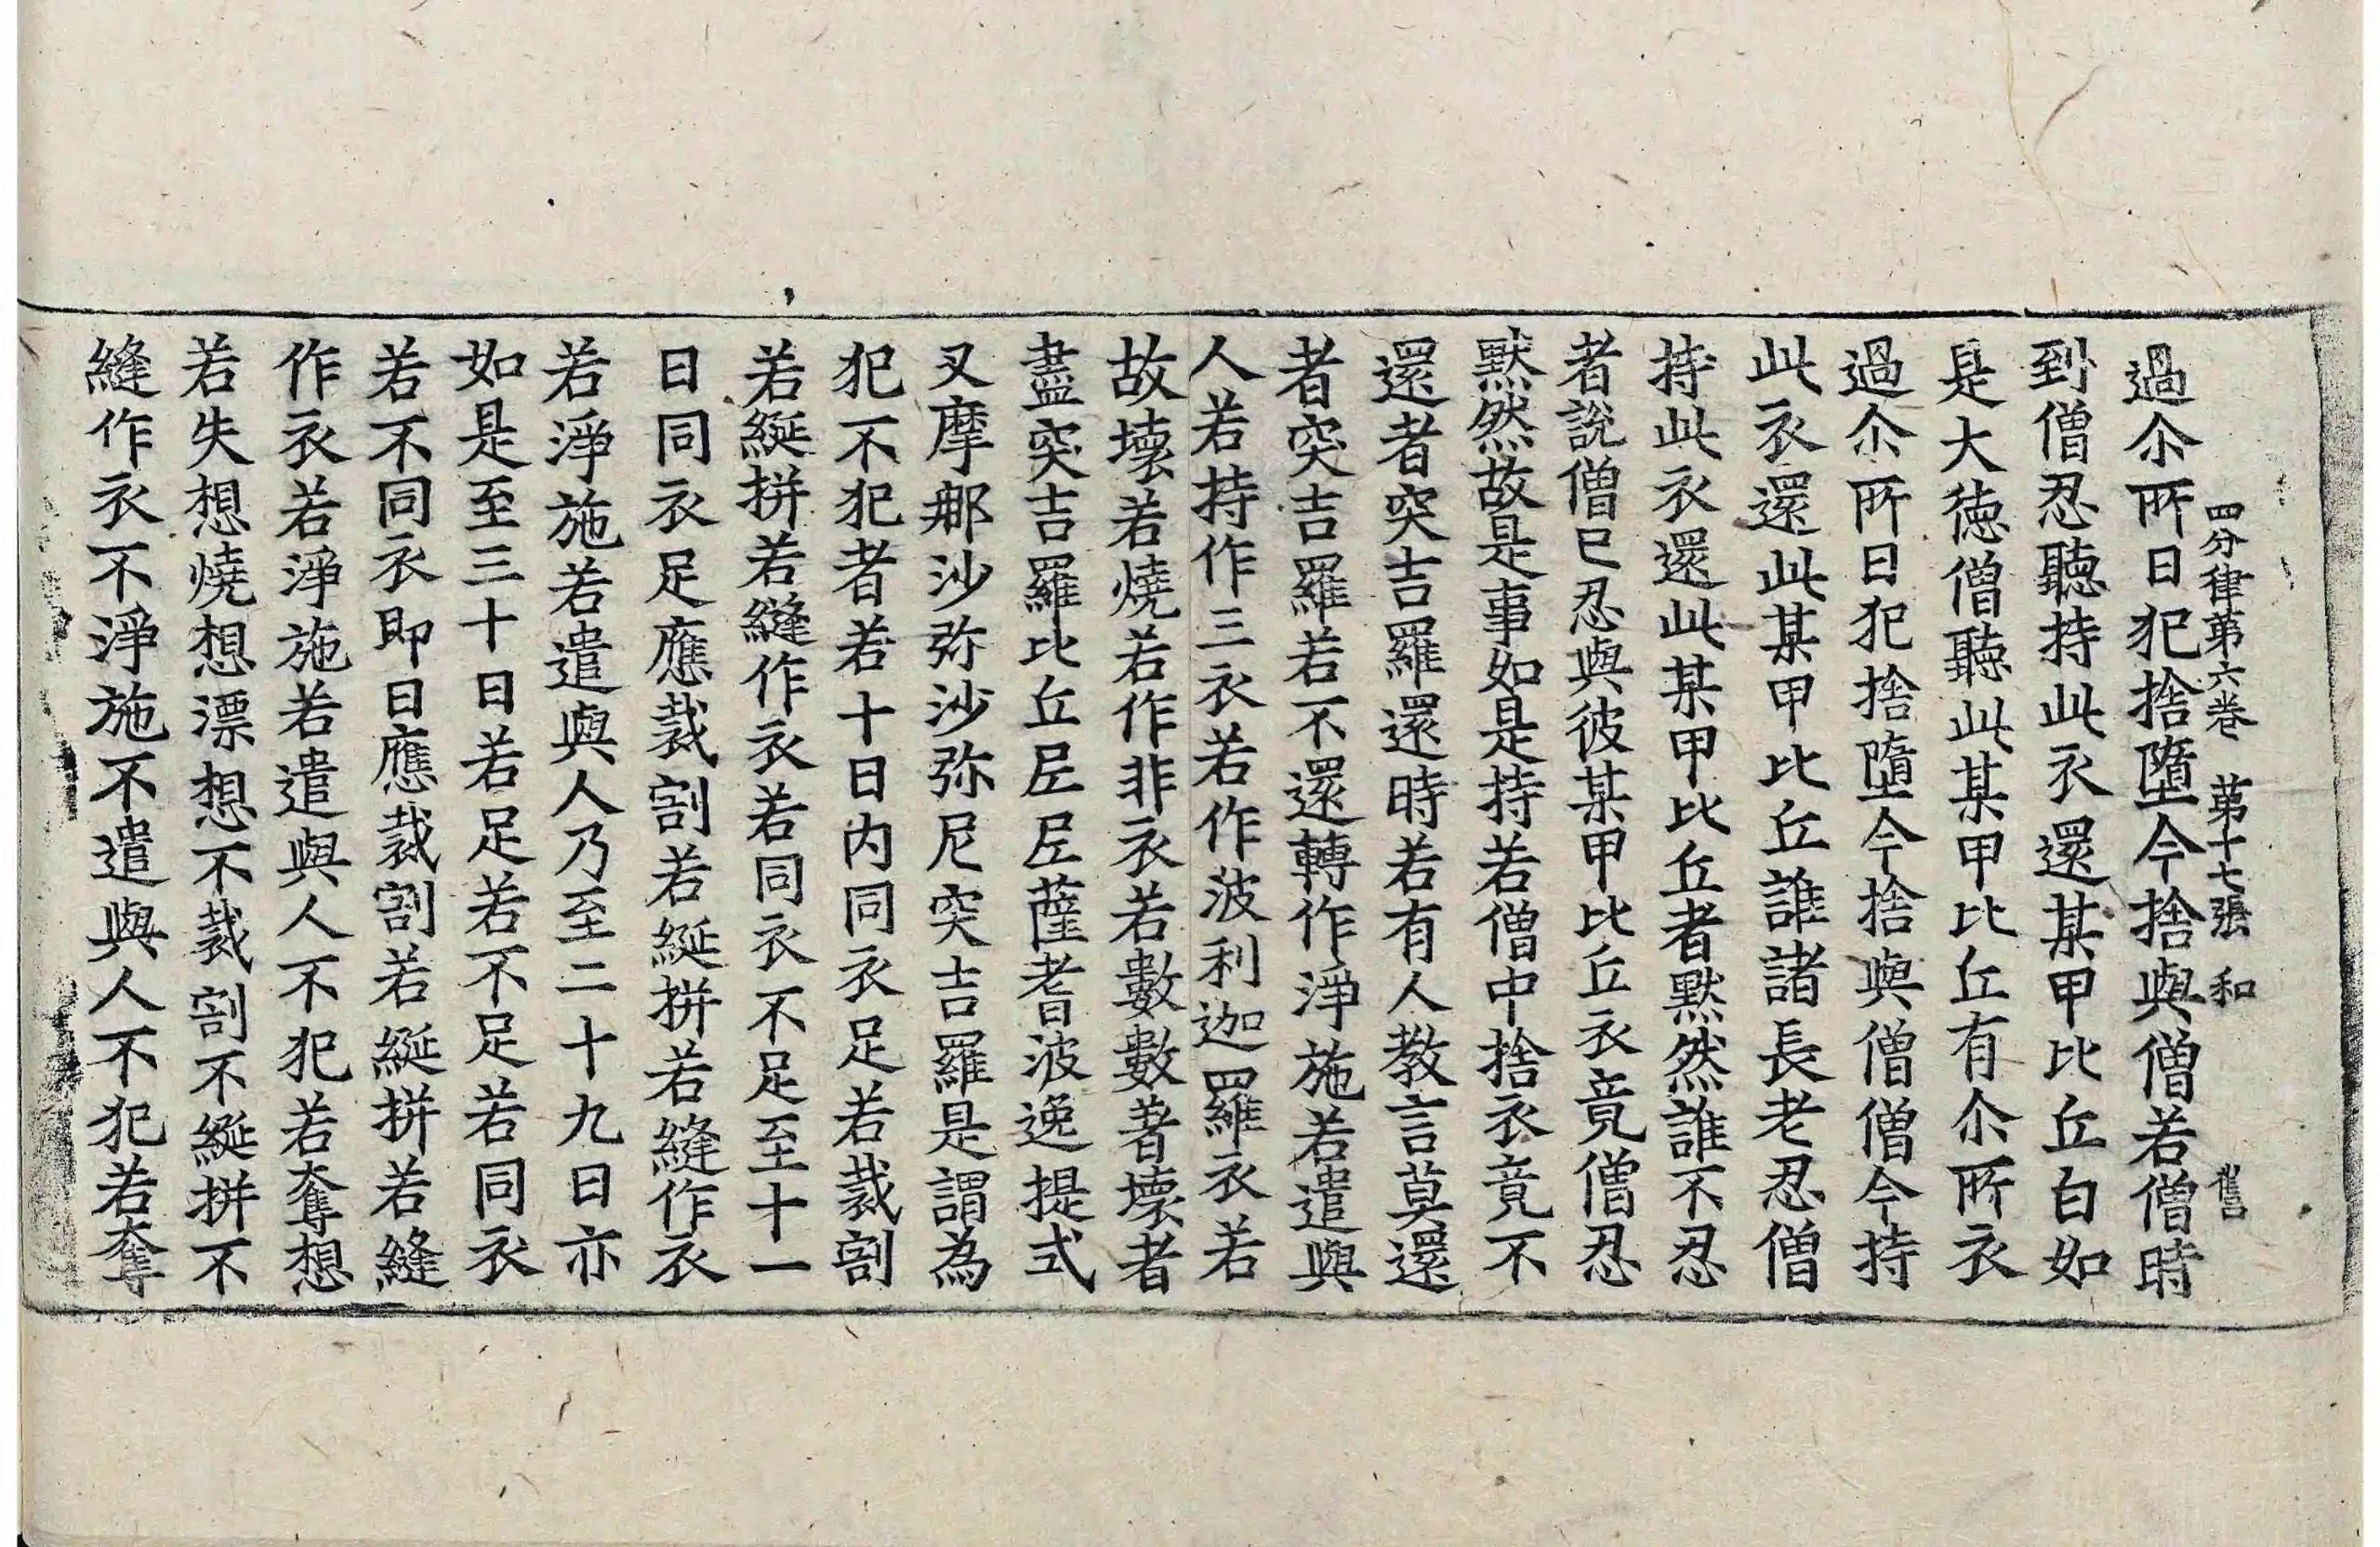 四分律第六卷　第十七張　和
過尒所日犯捨墮今捨與僧若僧時
到僧忍聽持此衣還某甲比丘白如
是大德僧聽此某甲比丘有尒所衣
過尒所日犯捨墮今捨與僧僧今持
此衣還此某甲比丘誰諸長老忍僧
持此衣還此某甲比丘者默然誰不忍
者說僧已忍與彼某甲比丘衣竟僧忍
默然故是事如是持若僧中捨衣竟不
還者突吉羅還時若有人教言莫還
者突吉羅若不還轉作淨施若遣與
人若持作三衣若作波利迦羅衣若
故壞若燒若作非衣若數數著壞者
盡突吉羅比丘尼尼薩耆波逸提式
叉摩那沙弥沙弥尼突吉羅是謂為
犯不犯者若十日内同衣足若裁割
若綖拼若縫作衣若同衣不足至十一
日同衣足應裁割若綖拼若縫作衣
若淨施若遣與人乃至二十九日亦
如是至三十日若足若不足若同衣
若不同衣即日應裁割若綖拼若縫
作衣若淨施若遣與人不犯若奪想
若失想燒想漂想不裁割不綖拼不
縫作衣不淨施不遣與人不犯若奪